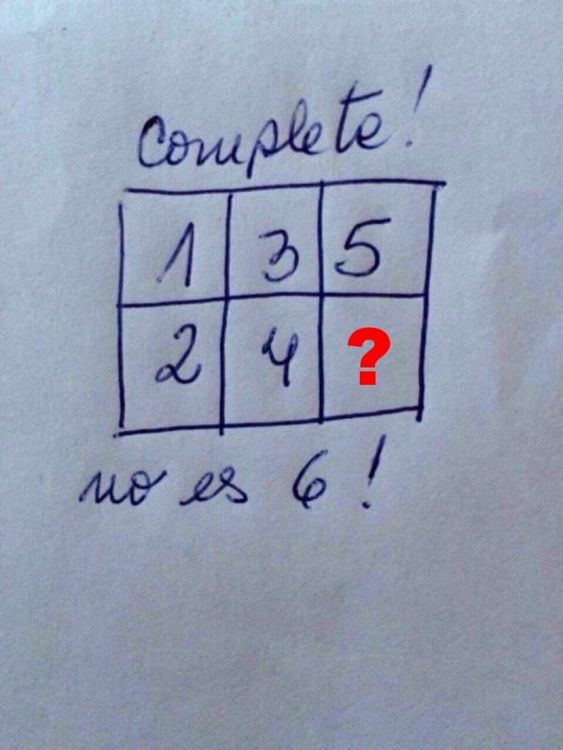 Complete!
1 3 5
2 4 ?
no es 6!